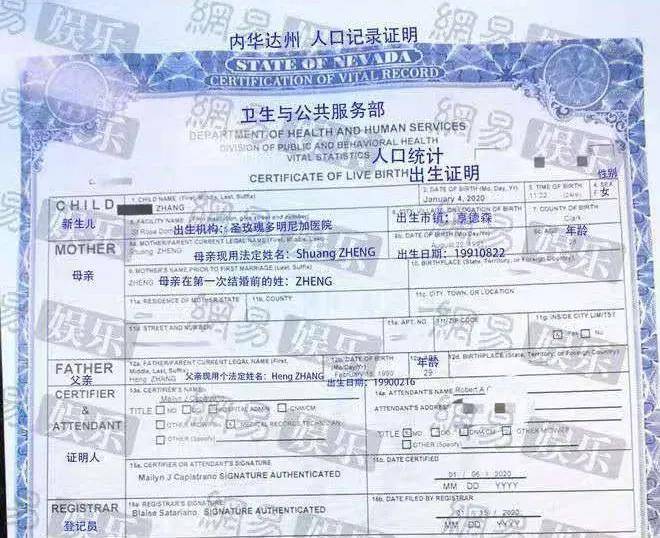 網易 娱乐
内华达州 人口记录证明
STATE OF NEVADA
CERTIFICATION OF VITAL RECORD
卫生与公共服务部
DEPARTMENT OF HEALTH AND HUMAN SERVICES
DIVISION OF PUBLIC AND BEHAVIORAL HEALTH
VITAL STATISTICS 人口统计
CERTIFICATE OF LIVE BIRTH 出生证明
性别
CHILD 1. CHILD NAME (First, Middle, Last, Suffix) 2. DATE OF BIRTH (Mo, Day, Yr) 3. TIME OF BIRTH 4. SEX
ZHANG January 4, 2020 女
新生儿 5. FACILITY NAME 7. COUNTY OF BIRTH
St Rose 出生机构：圣玫瑰多明尼加医院 出生市镇：享德森 Clark
MOTHER 8a. MOTHER/PARENT CURRENT LEGAL NAME (First, Middle, Last, Suffix) 8b. DATE OF BIRTH (Mo, Day, Yr) 年龄
Shuang ZHENG 母亲现用法定姓名：Shuang ZHENG 出生日期：19910822
母亲 9. MOTHER'S NAME PRIOR TO FIRST MARRIAGE (Last, Suffix) 10. BIRTHPLACE (State, Territory, or Foreign Country)
ZHENG 母亲在第一次结婚前的姓：ZHENG
11a. RESIDENCE OF MOTHER-STATE 11b. COUNTY 11c. CITY, TOWN, OR LOCATION
11d. STREET AND NUMBER 11e. APT. NO. 11f. ZIP CODE 11g. INSIDE CITY LIMITS?
Yes No
FATHER 12a. FATHER/PARENT CURRENT LEGAL NAME (First, Middle, Last, Suffix) 12b. DATE OF BIRTH (Mo/Day/Yr) 年龄 12d. BIRTHPLACE (State, Territory, or Foreign Country)
父亲 Heng ZHANG 父亲现用个法定姓名：Heng ZHANG February 16, 1990 29
出生日期：19900216
CERTIFIER 13a. CERTIFIER'S NAME 14a. ATTENDANT'S NAME Robert A
& Mailyn J Capistrano ATTENDANT'S ADDRESS
ATTENDANT TITLE MD DO HOSPITAL ADMIN CNM/CM TITLE MD DO CNM/CM OTHER MIDWIFE
OTHER MIDWIFE MEDICAL RECORDS TECHNICIAN OTHER (Specify)
证明人 OTHER (Specify)
15a. CERTIFIER OR ATTENDANT'S SIGNATURE DATE CERTIFIED
Mailyn J Capistrano SIGNATURE AUTHENTICATED 01 / 06 / 2020
MM DD YYYY
REGISTRAR 16a. REGISTRAR'S SIGNATURE 16b. DATE FILED BY REGISTRAR
登记员 Blaise Satariano, SIGNATURE AUTHENTICATED 2020
MM DD YYYY